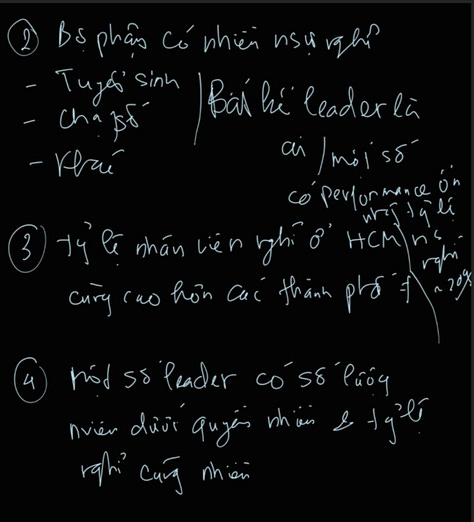 ② Bộ phận có nhiều nsự nghỉ
- Tuyển sinh
- Chạy số
- Khác
Bất kể leader là
ai / một số
có performance ổn
nhưng tỷ lệ
ns
nghỉ
~20%
③ tỷ lệ nhân viên nghỉ ở HCM
cũng cao hơn các thành phố
④ Một số leader có số lượng
nviên dưới quyền nhiều & tỷ lệ
nghỉ cũng nhiều